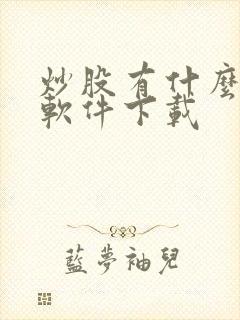 炒股有什麼
軟件下載
藍夢袖兒